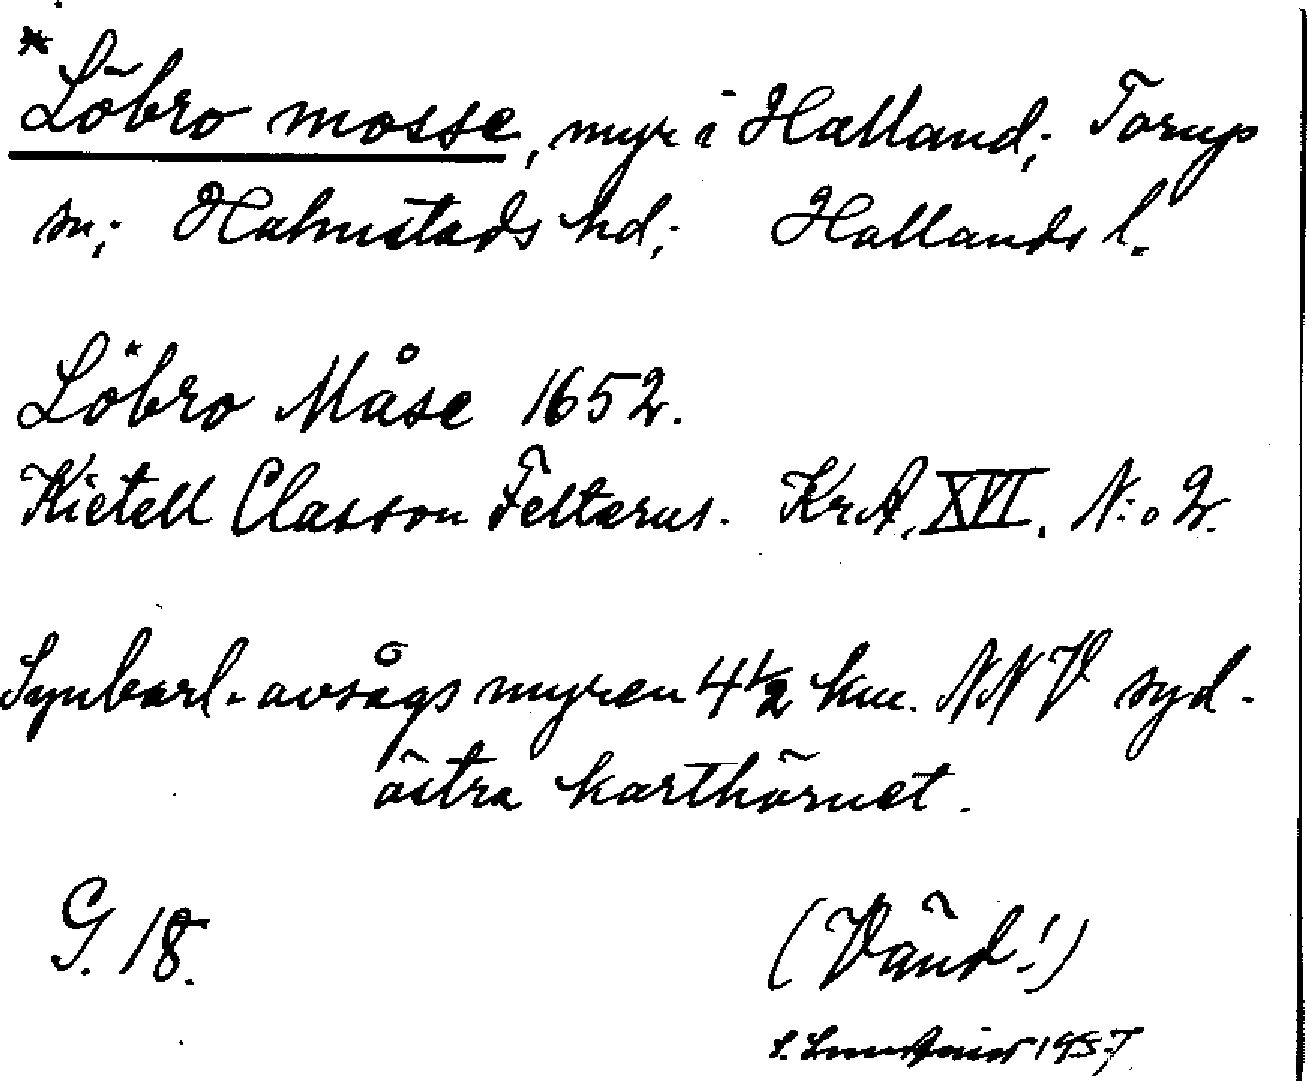 *Löbro mosse, myr i Halland; Torup
sn; Halmstads hd; Hallands l.
Löbro Måse 1652.
Kietell Classon Felterus. KrA. XVI. N:o 2.
Synbarl. avsågs myren 4 1/2 km. NNV syd-
östra karthörnet.
G. 18.
(Vänd!)
S. 1957